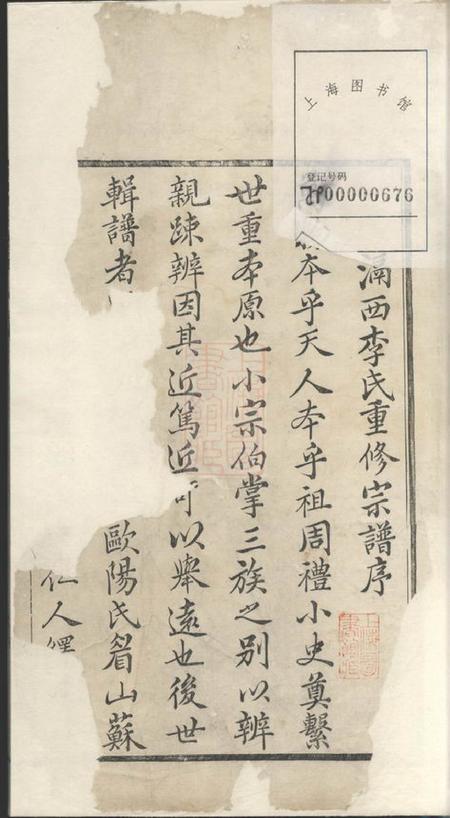 上海图书馆
登记号码
JP00000676
滆西李氏重修宗譜序
本乎天人本乎祖周禮小史奠繫
世重本原也小宗伯掌三族之别以辨
親踈辨因其近篤近可以舉遠也後世
輯譜者
歐陽氏眉山蘇
仁人